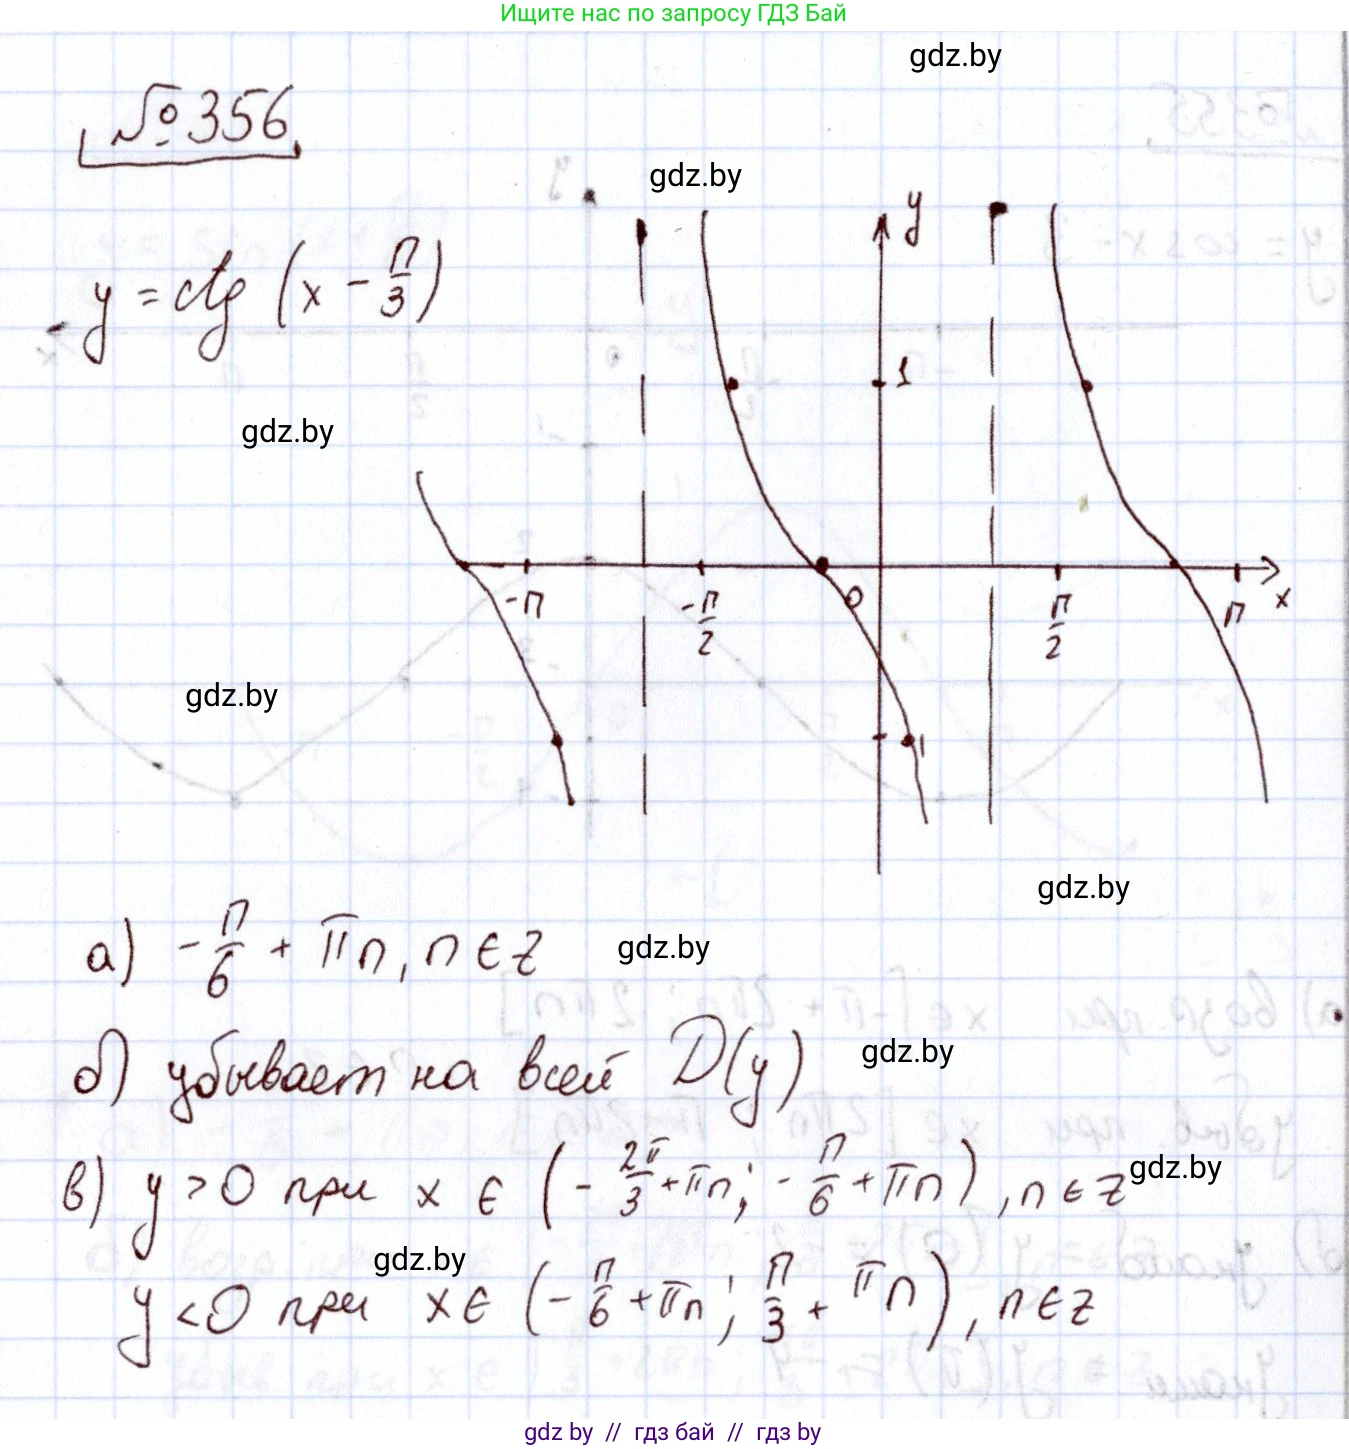 Ищите нас по запросу ГДЗ Бай
gdz.by
№356
gdz.by
y = ctg (x - π/3)
gdz.by
y
1
-π
-π/2
0
π/2
π
x
1
gdz.by
gdz.by
а) -π/6 + πn, n ∈ Z
gdz.by
б) убывает на всей D(y)
gdz.by
в) y > 0 при x ∈ (-2π/3 + πn; -π/6 + πn), n ∈ Z
gdz.by
gdz.by
y < 0 при x ∈ (-π/6 + πn; π/3 + πn), n ∈ Z
gdz.by // гдз бай // гдз by